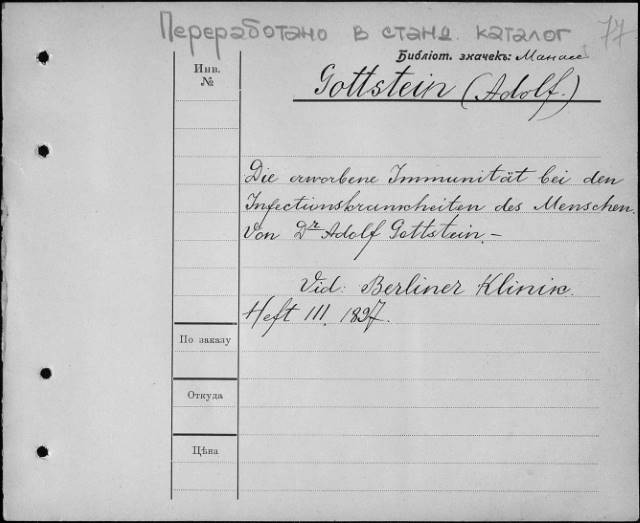 Переработано в станд. каталог 77
Библіот. значекъ: Манасе
Инв.
№
Gottstein (Adolf.)
Die erworbene Immunität bei den
Infectionskrankheiten des Menschen.
Von Dr Adolf Gottstein.–
Vid: Berliner Klinik.
Heft III. 1897.
По заказу
Откуда
Цѣна